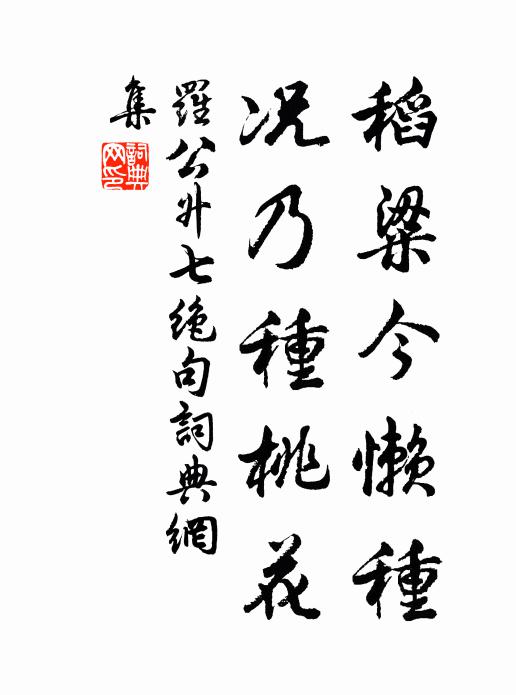 稻粱今懒種
况乃種桃花
羅公升七绝句詞典網
集
詞典网印